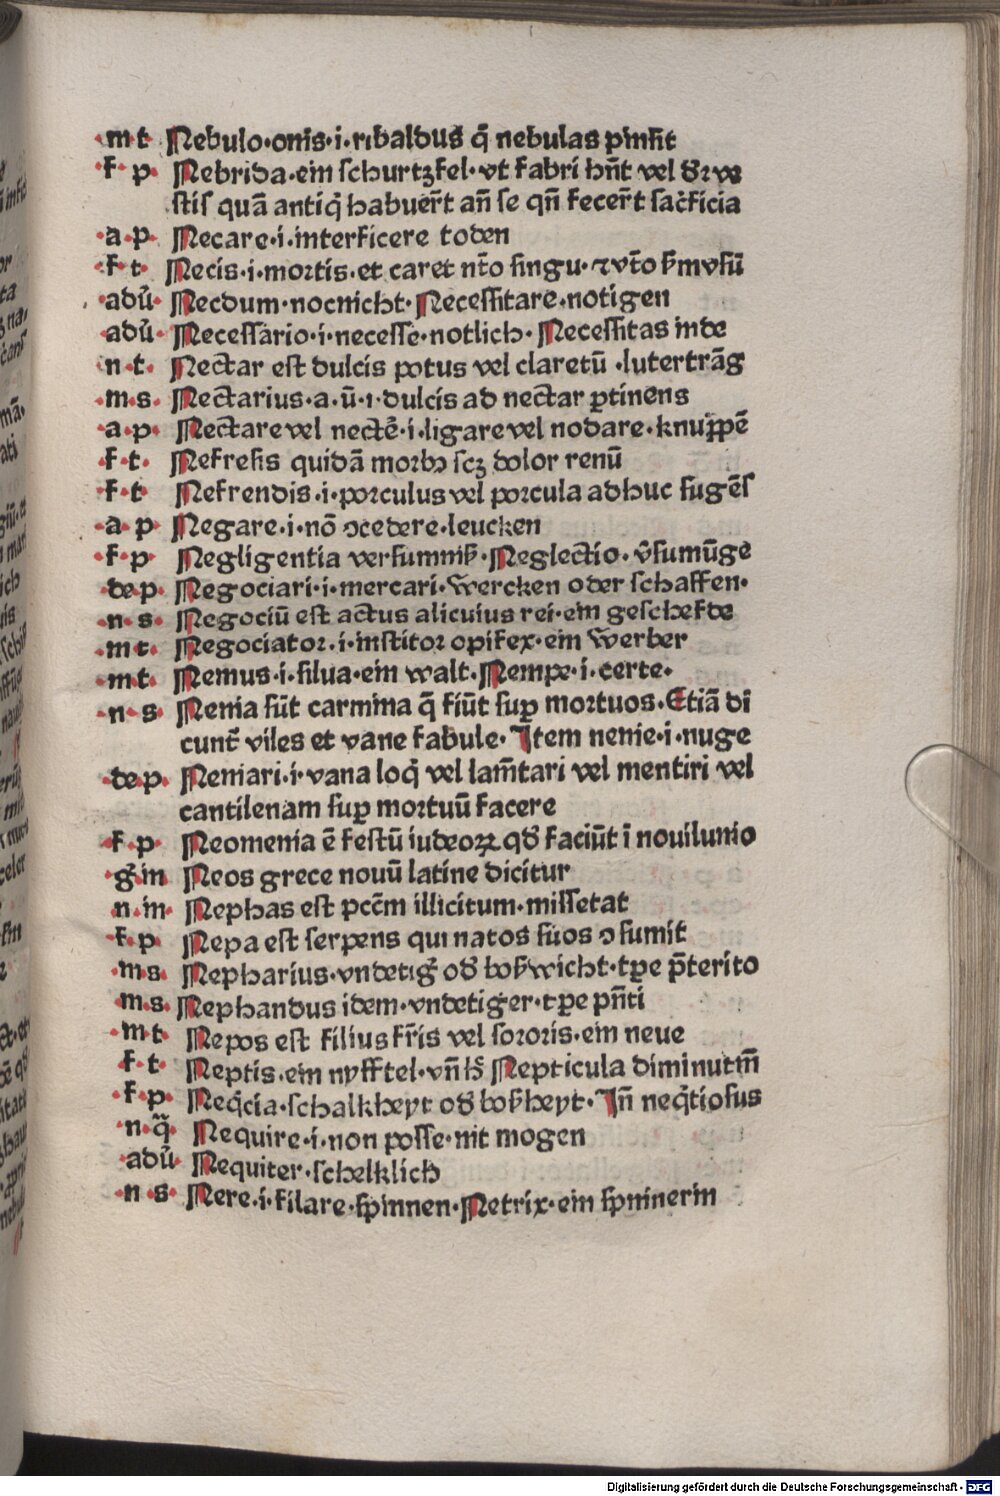 ·m·t· Nebulo·onis·i·ribaldus q̄ nebulas pīnsit
·f· p· Nebrida·ein schurtzfel·vt fabri hn̄t vel d2 ve
stis quā antiq̇ habuer̄t an̄ se qn̄ fecer̄t sac̄ficia
·a·p· Necare·i·interficere toden
·f·t· Necis·i·mortis·et caret nt̄o singu·⁊ vt̄o
adū· Necdum·nocnicht·Necessitare·notigen
adū· Necessario·i·necesse·notlich·Necessitas inde
n·t· Nectar est dulcis potus vel claretū·lutertrāg
·m·s· Nectarius·a·ū·i·dulcis ad nectar ꝑtinens
·a·p· Nectare vel nectē·i·ligare vel nodare·knuppē
f·t· Nefresis quidā morbꝰ scꝫ dolor renū
·f·t Nefrendis·i·porculus vel porcula adhuc sugēs
·a·p Negare·i·nō ꝯcedere·leucken
·f·p· Negligentia versumniß·Neglectio·v̄sumūge
dep· Negociari·i·mercari·Wercken oder schaffen·
·n·s· Negociū est actus alicuius rei·ein geschefde
·m·t· Negociator·i·institor opifex·ein Werber
·m·t· Nemus·i·silua·ein walt·Nempe·i·certe·
·n·s Nenia sūt carmina q̄ fiūt suꝑ mortuos·Etiā di
cunt̄ viles et vane fabule·Item nenie·i·nuge
·dep· Neniari·i·vana loq̇ vel lam̄tari vel mentiri vel
cantilenam suꝑ mortuū facere
·f·p· Neomenia ē festū iudeoꝝ qd̄ faciūt ī nouilunio
·g·in Neos grece nouū latine dicitur
n·in· Nephas est pcc̄m illicitum·missetat
·f·p· Nepa est serpens qui natos suos ꝯsumit
·m·s· Nepharius·vndetig̾ od̾ boßwicht·tꝑe p̄terito
·m·s· Nephandus idem·vndetiger·tꝑe pn̄ti
·m·t· Nepos est filius fr̄is vel sororis·ein neue
·f·t· Neptis·ein nyfftel·vn̄ Nepticula diminutm̄
·f·p· Neq̇cia·schalkheyt od̾ boßheyt·In̄ neq̇tiosus
·n·q̄· Nequire·i·non posse·nit mogen
·adū· Nequiter·schelklich
·n·s· Nere·i·filare·spinnen·Netrix·ein spinnerin
Digitalisierung gefördert durch die Deutsche Forschungsgemeinschaft - DFG